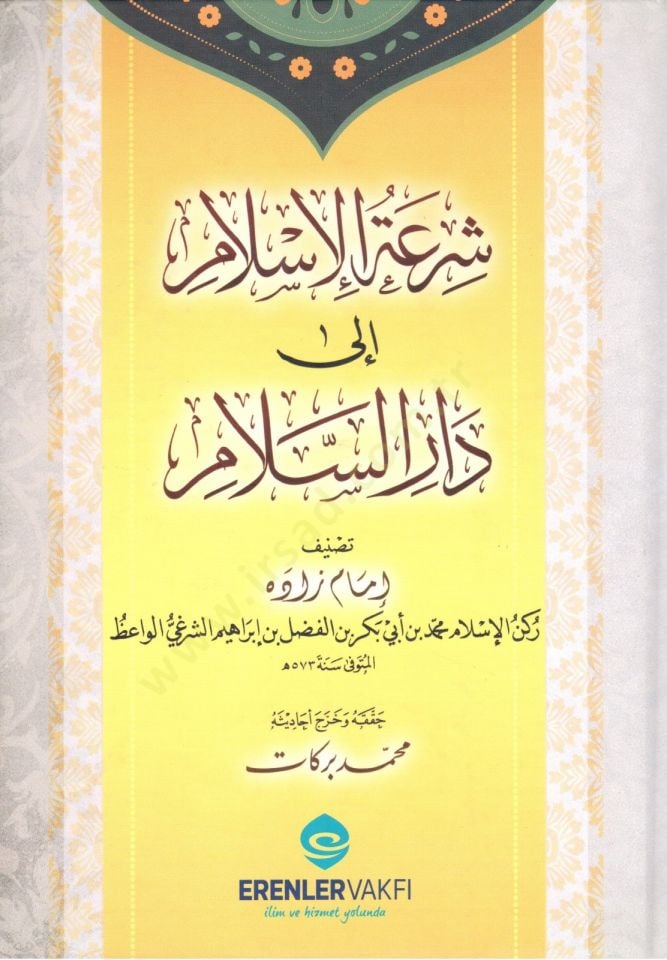 شِرعَةُ الإِسْلَامِ
إلى
دَارِ السَّلَامِ
تصنيف
إمام زاده
رُكنُ الإسلام محمد بن أبي بكر بن الفضل بن إبراهيم الشرغيُّ الواعظُ
المتوفى سنة ٥٧٣ه
حققه وخرج أحاديثه
محمد بركات
ERENLERVAKFI
ilim ve hizmet yolunda